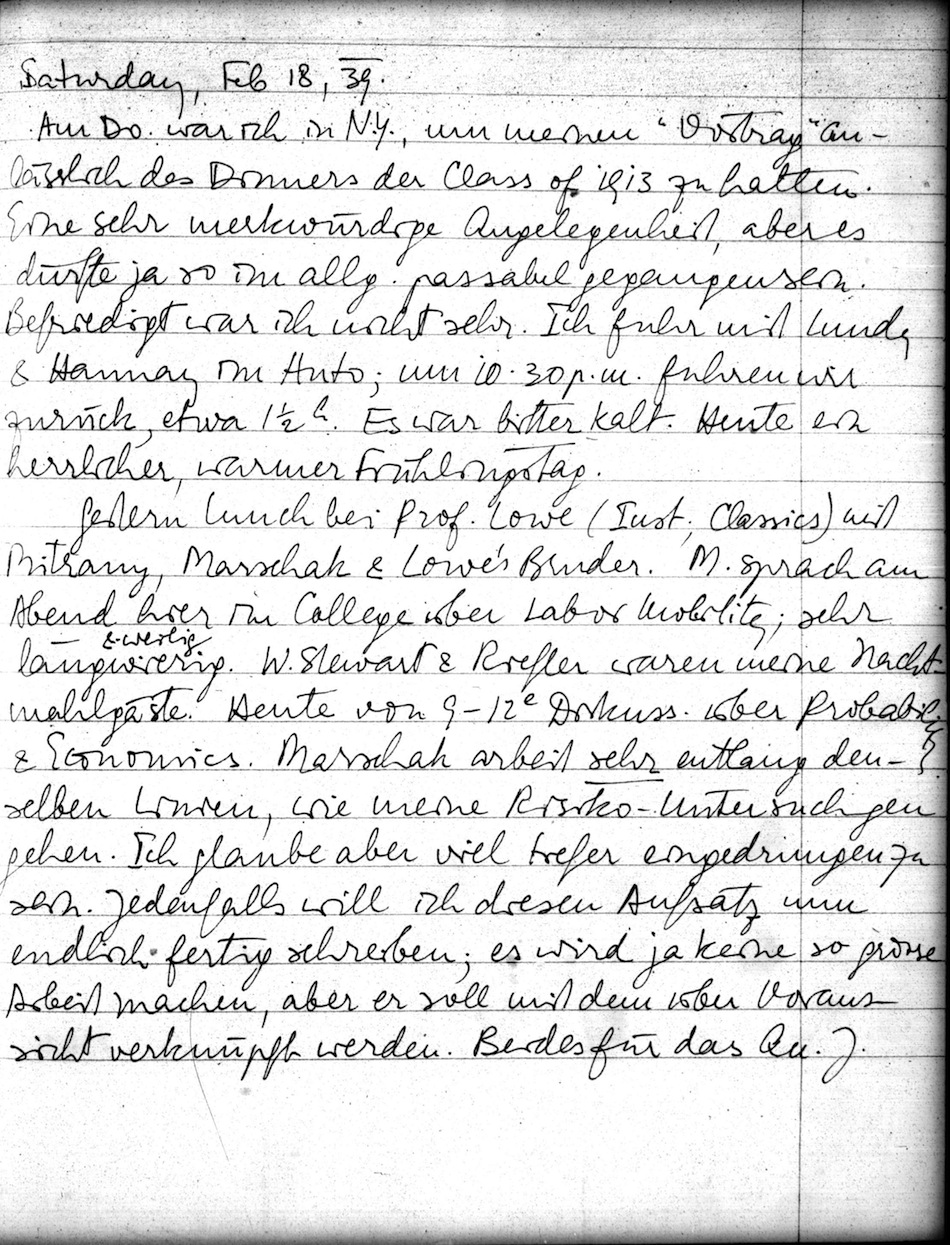 Saturday, Feb 18, 39.
Am Do. war ich in N.Y., um meinen "Vortrag" an-
lässlich des Dinners der Class of 1913 zu halten.
Eine sehr merkwürdige Angelegenheit, aber es
dürfte ja so im allg. passabel gegangen sein.
Befriedigt war ich nicht sehr. Ich fuhr mit Lundy
& Hannay im Auto; um 10.30 p.m. fuhren wir
zurück, etwa 1½ h. Es war bitter kalt. Heute ein
herrlicher, warmer Frühlingstag.
Gestern Lunch bei Prof. Lowe (Inst. Classics) mit
Mitrany, Marschak & Lowe's Bruder. M. sprach am
Abend hier im College über Labor Mobility; sehr
& -weilig
langwierig. W. Stewart & Riefler waren meine Nacht-
mahlgäste. Heute von 9-12 e Diskuss. über Probability
& Economics. Marschak arbeit sehr entlang den-
selben Linien, wie meine Risiko-Untersuchgen
gehen. Ich glaube aber viel tiefer eingedrungen zu
sein. Jedenfalls will ich diesen Aufsatz nun
endlich fertig schreiben; es wird ja keine so grosse
Arbeit machen, aber er soll mit dem über Voraus-
sicht verknüpft werden. Beides für das Qu. J.